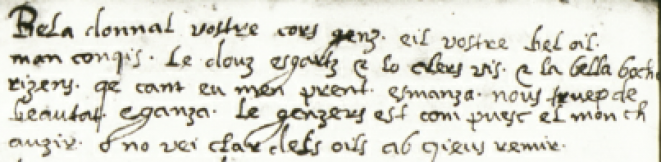 Bela donnal vostre cors genz. eil vostre bel oil.
man conqis. Le douz esgartz e lo clers vis. e la bella bocha
rizens. qe cant eu men prent esmanza. nous truep de
beautat eganza. Le genzers est com puesc el mon ch
auzir. o no vei clar dels oils ab qieus remir.